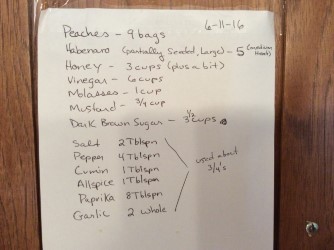 6-11-16
Peaches - 9 bags
Habenaro (partially seeded, Large) - 5 (medium heat)
Honey - 3 cups (plus a bit)
Vinegar - 6 cups
Molasses - 1 cup
Mustard - 3/4 cup
Dark Brown Sugar - 3 1/2 cups
Salt 2 Tblspn
Pepper 4 Tblspn
Cumin 1 Tblspn
Allspice 1 Tblspn
Paprika 8 Tblspn
Garlic 2 whole
used about
3/4's